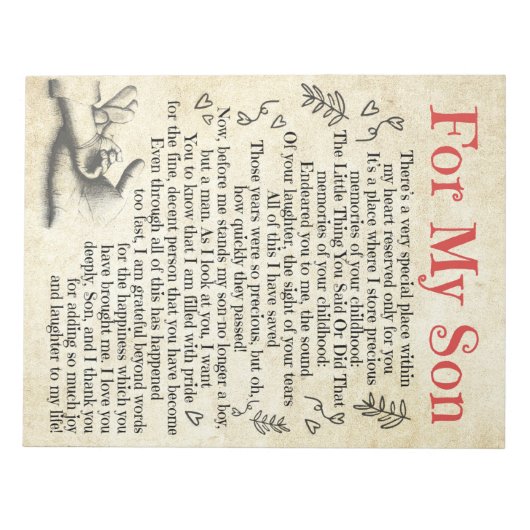 For My Son
There's a very special place within
my heart reserved only for you
It's a place where I store precious
memories of your childhood:
The Little Thing You Said Or Did That
memories of your childhood:
Endeared you to me, the sound
Of your laughter, the sight of your tears
All of this I have saved
Those years were so precious, but oh,
how quickly they passed!
Now, before me stands my son no longer a boy,
but a man. As I look at you, I want
You to know that I am filled with pride
for the fine, decent person that you have become
Even through all of this has happened
too fast, I am grateful beyond words
for the happiness which you
have brought me. I love you
deeply, Son, and I thank you
for adding so much joy
and laughter to my life!